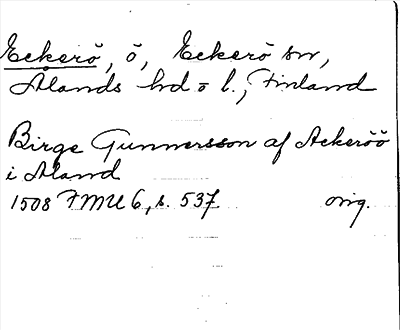 Eckerö, ö, Eckerö sn,
Ålands hd o l., Finland
Birge Gunnersson af Aekeröö
i Aland
1508 FMU 6, s. 537 orig.